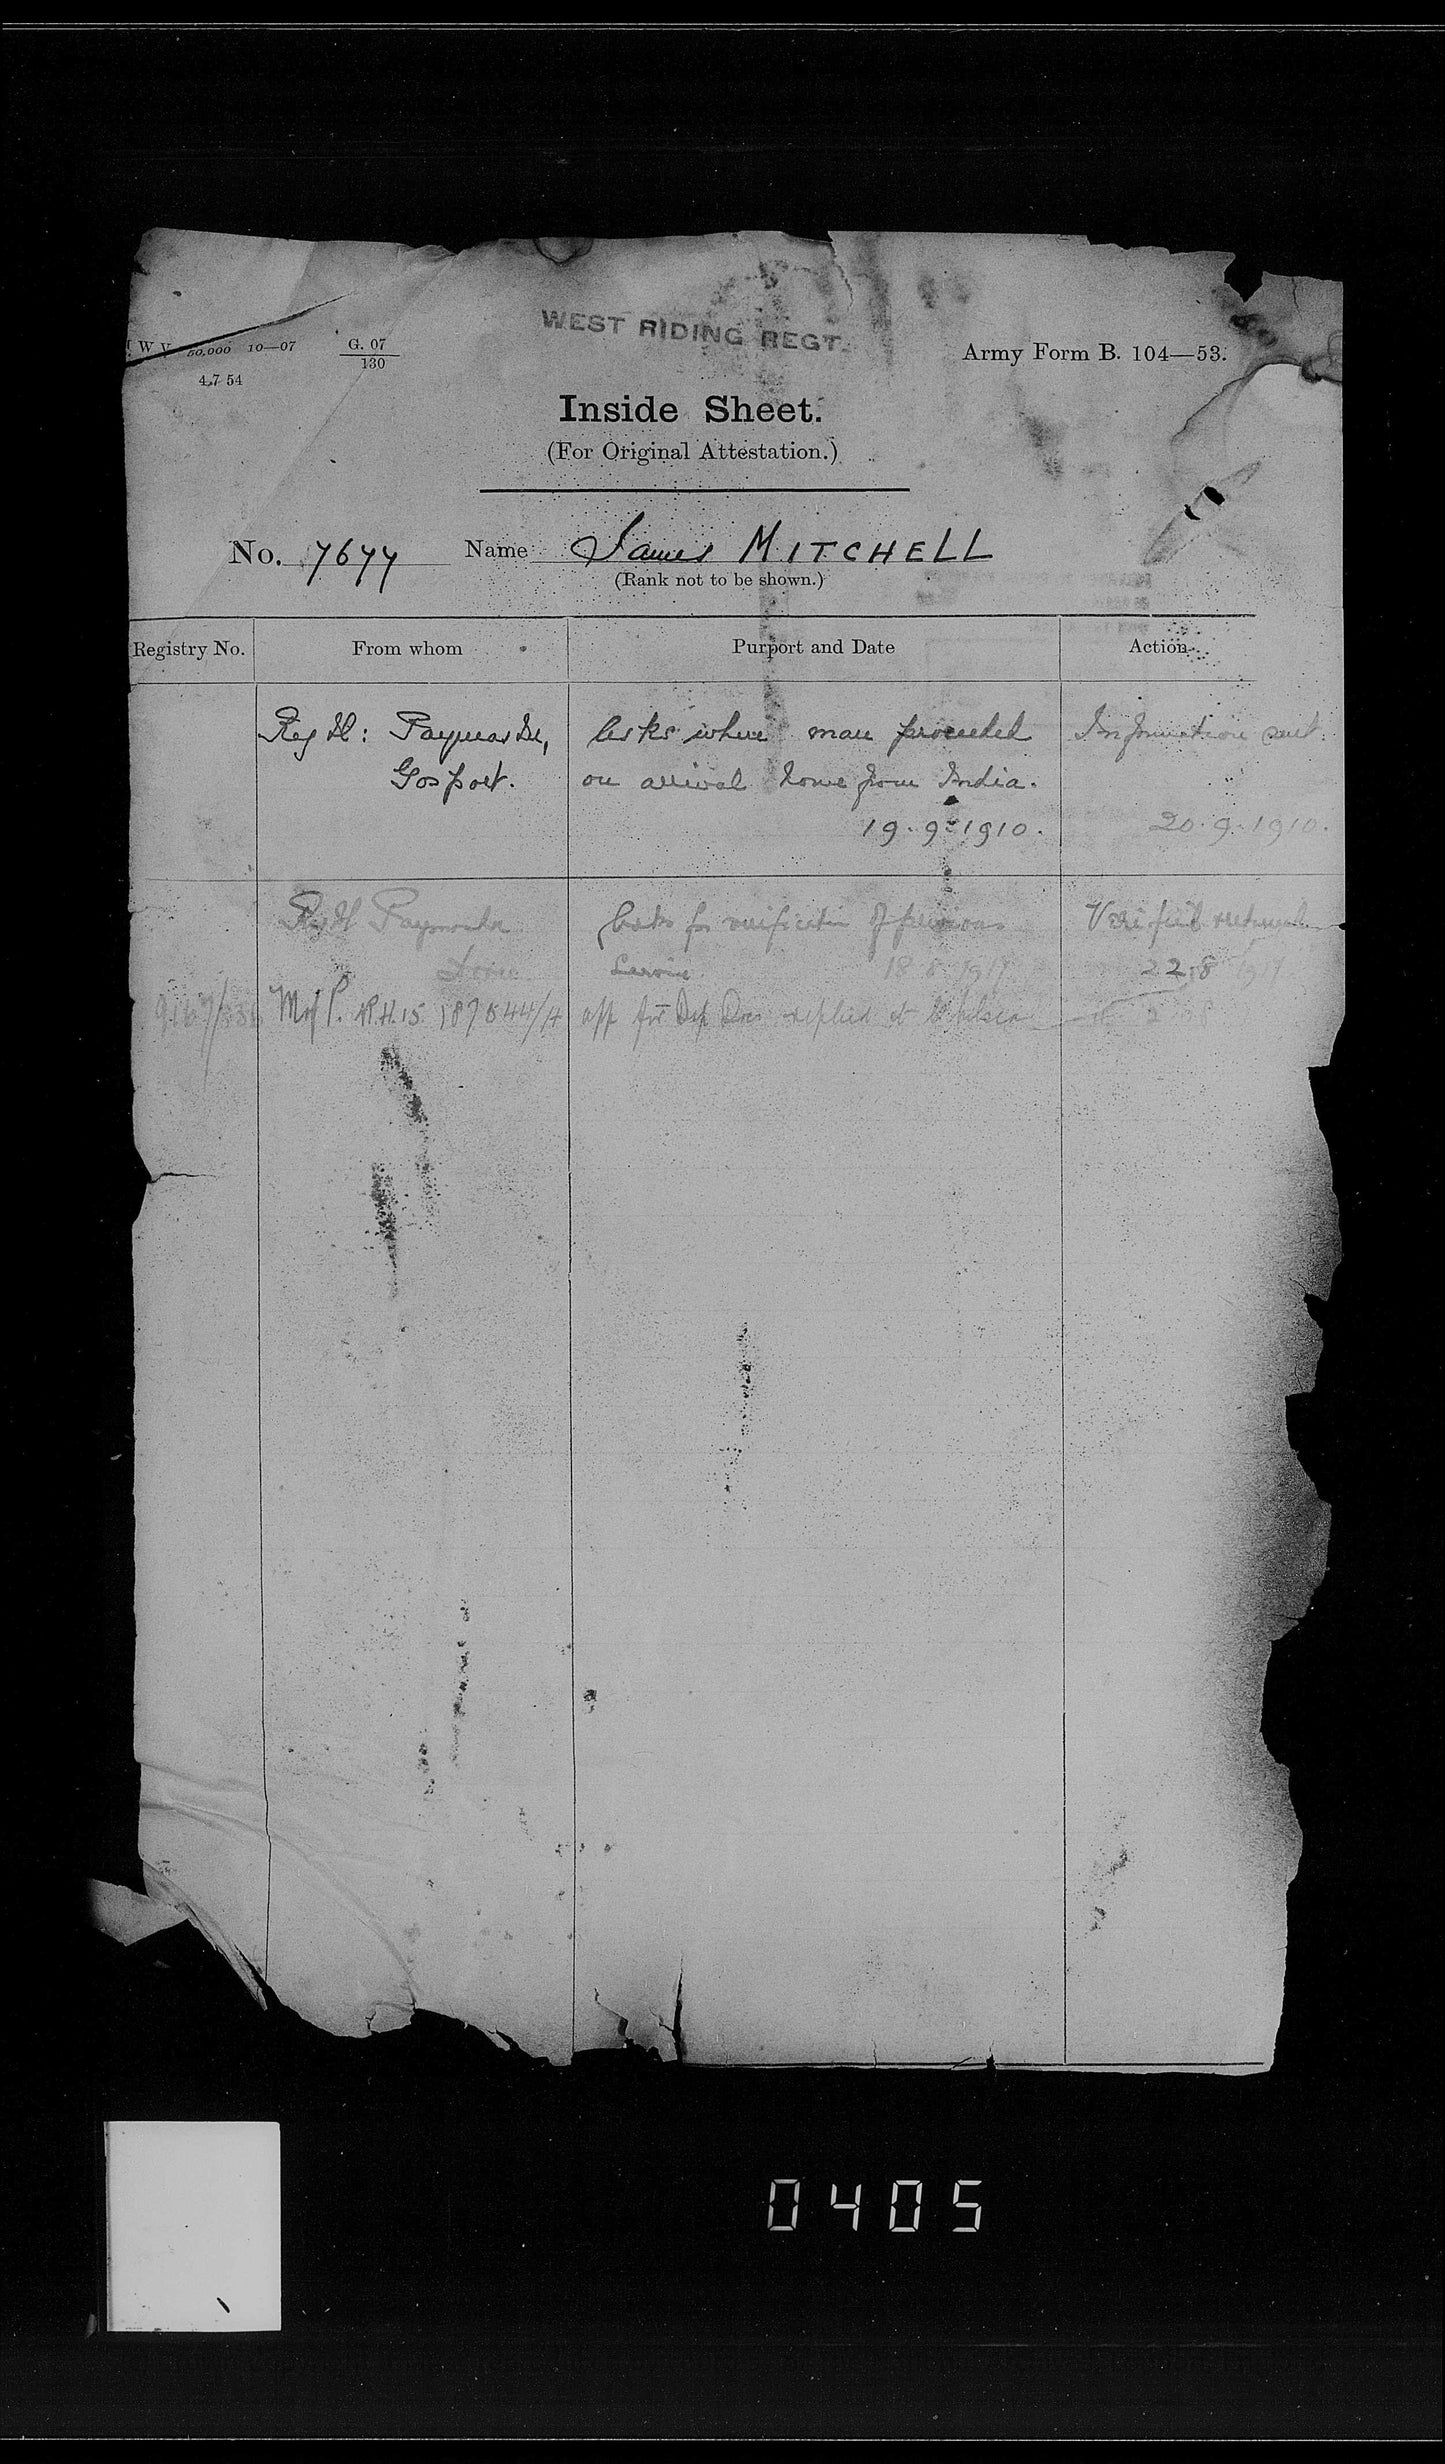 WEST RIDING REGT.
W V 50,000 10—07 G. 07
130
4 7 54
Army Form B. 104—53.
Inside Sheet.
(For Original Attestation.)
No. 7677 Name James MITCHELL
(Rank not to be shown.)
Registry No. From whom Purport and Date Action
Regtl: Paymaster, Asks where man proceeded Information sent.
Gosport. on arrival home from India.
19.9.1910. 20.9.1910.
Regtl Paymaster Asks for verification of previous Verified returned
Service. 18 8 1917 22.8 1917
M of P. 187544/A app for Dis Docs replied at Chelsea
0405